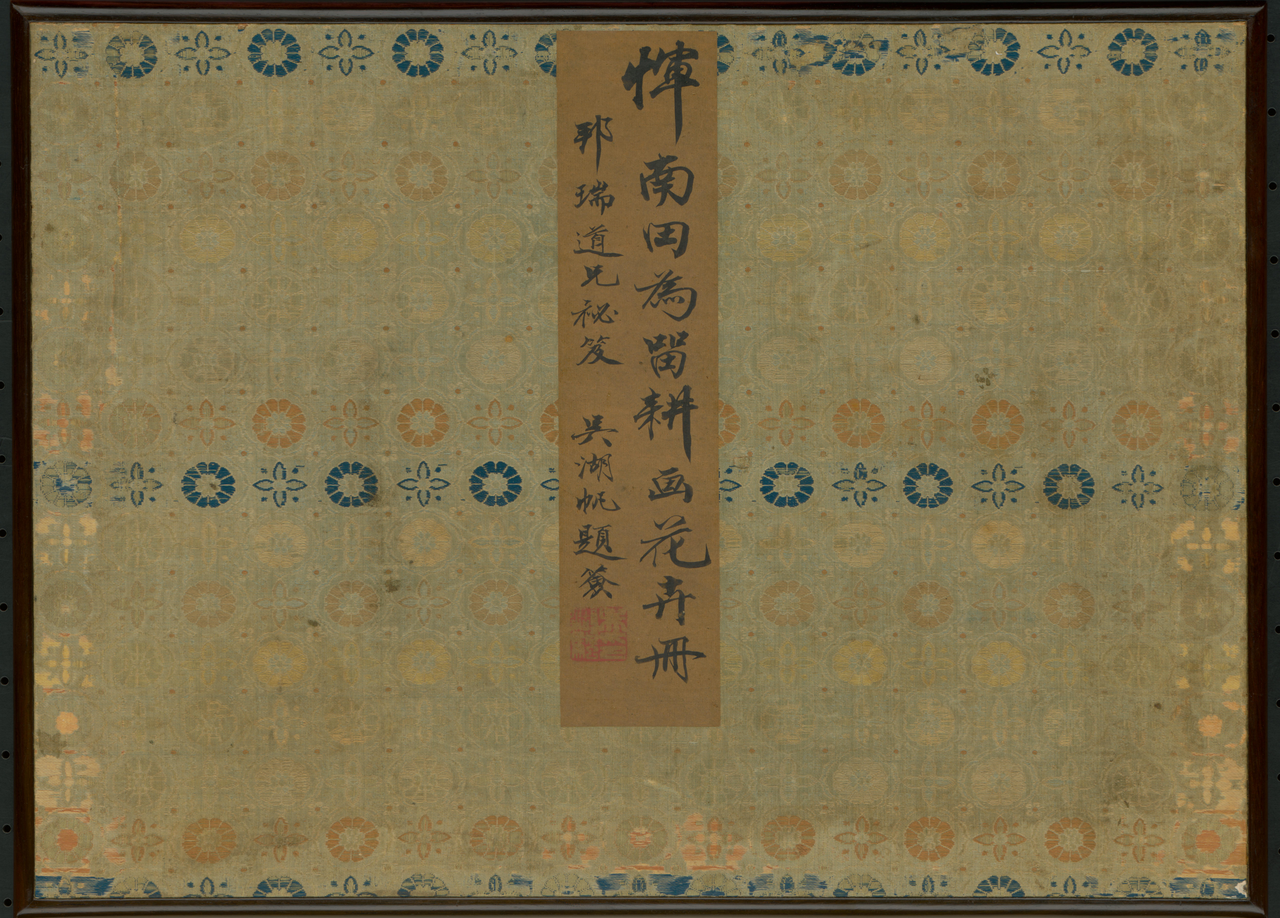 惲南田為畱耕画花卉冊
邦瑞道兄祕笈　吳湖帆題簽